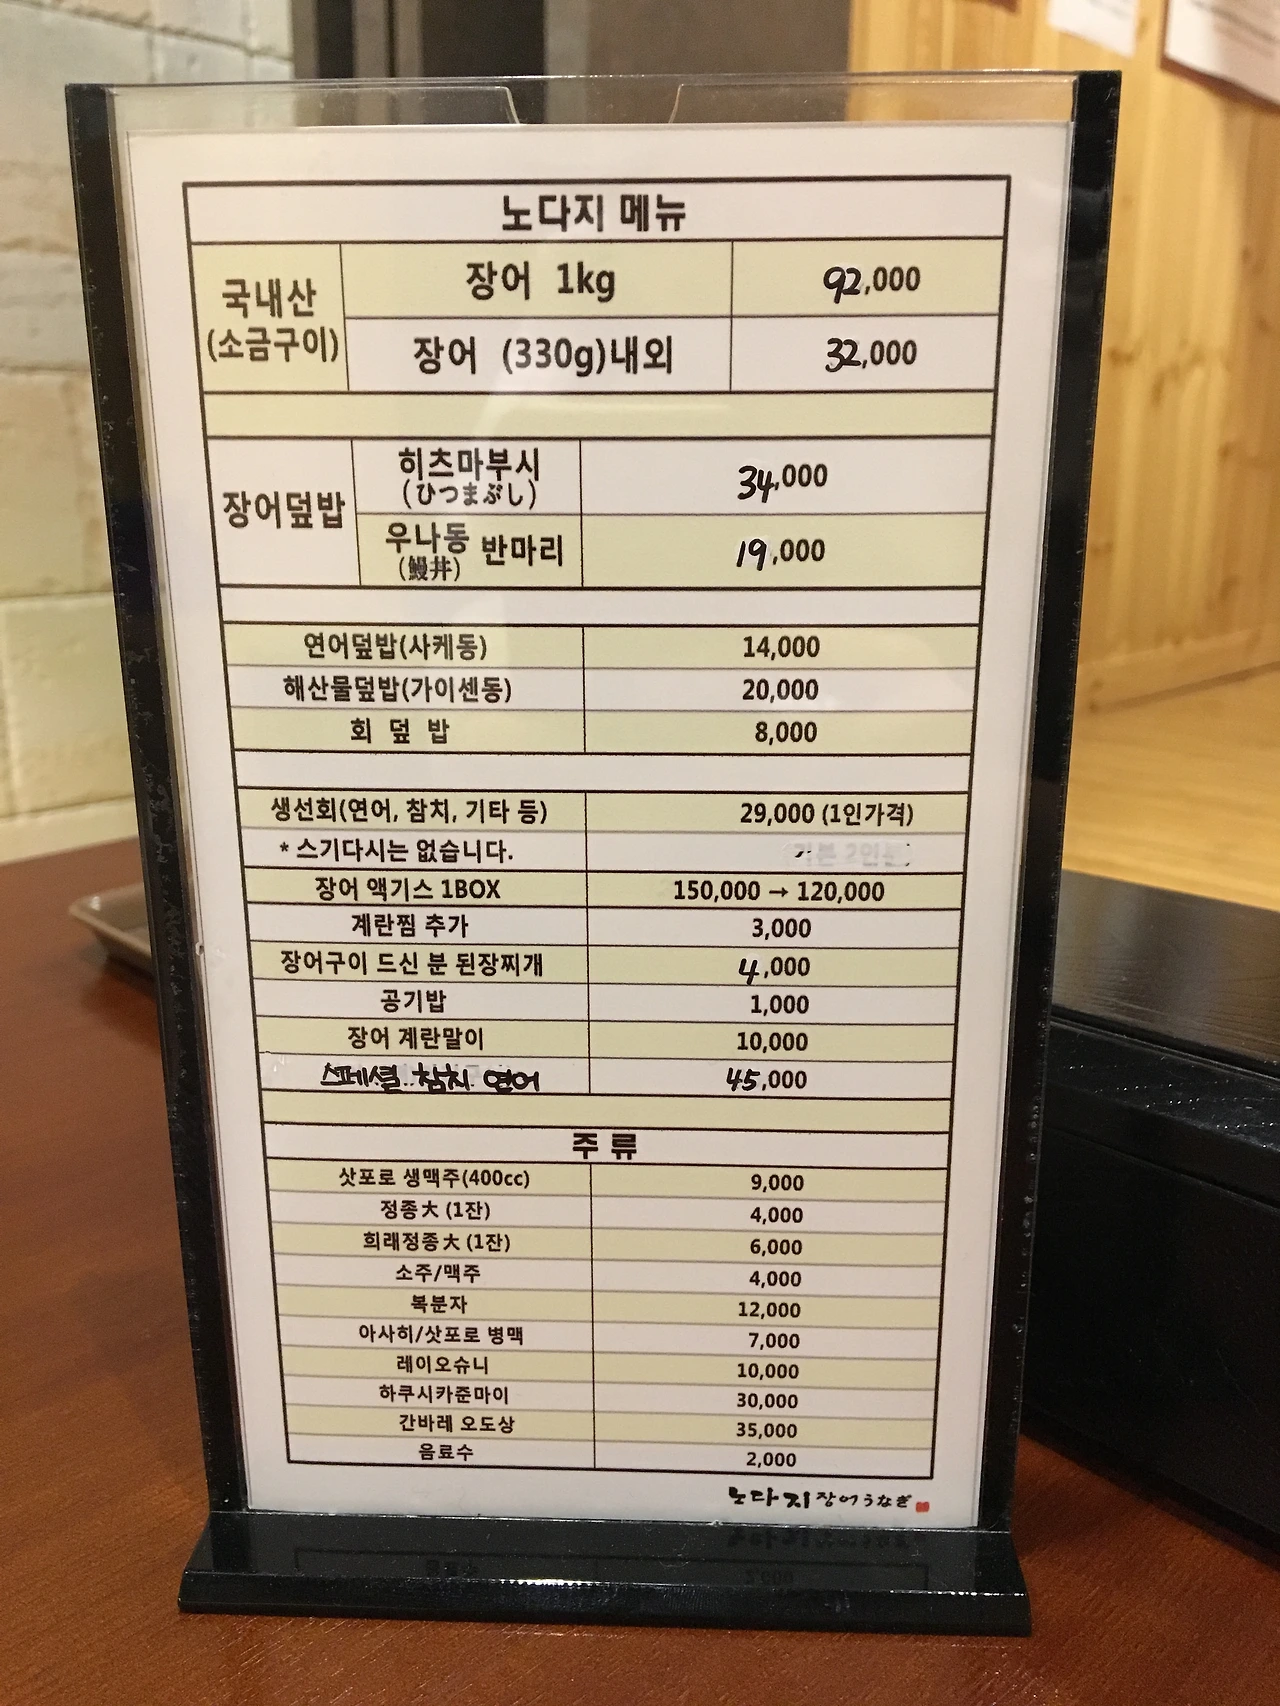 노다지 메뉴
국내산
(소금구이)
장어 1kg 92,000
장어 (330g)내외 32,000
장어덮밥
히츠마부시 34,000
(ひつまぶし)
우나동 반마리 19,000
(鰻丼)
연어덮밥(사케동) 14,000
해산물덮밥(가이센동) 20,000
회 덮 밥 8,000
생선회(연어, 참치, 기타 등) 29,000 (1인가격)
* 스기다시는 없습니다.
장어 액기스 1BOX 150,000 → 120,000
계란찜 추가 3,000
장어구이 드신 분 된장찌개 4,000
공기밥 1,000
장어 계란말이 10,000
스페셜 참치 연어 45,000
주 류
삿포로 생맥주(400cc) 9,000
정종大 (1잔) 4,000
희래정종大 (1잔) 6,000
소주/맥주 4,000
복분자 12,000
아사히/삿포로 병맥 7,000
레이오슈니 10,000
하쿠시카준마이 30,000
간바레 오도상 35,000
음료수 2,000
노다지 장어 うなぎ